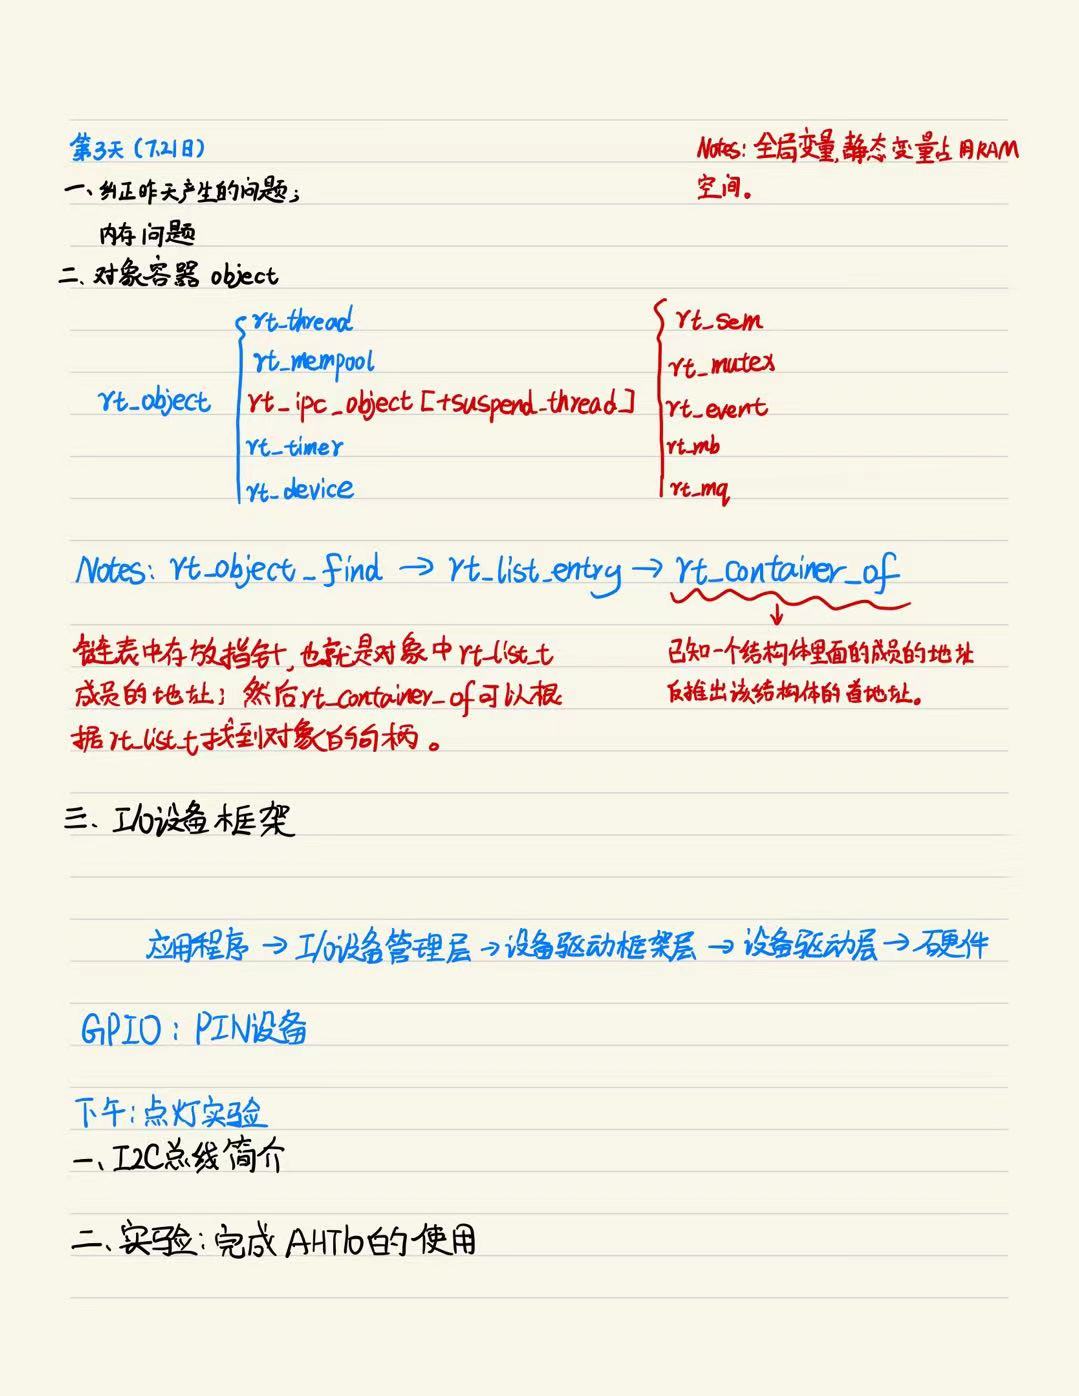 第3天(7.21日)
Notes: 全局变量,静态变量占用RAM
空间。
一、纠正昨天产生的问题;
内存问题
二、对象容器 object
rt_object
rt_thread
rt_mempool
rt_ipc_object [+suspend_thread]
rt_timer
rt_device
rt_sem
rt_mutex
rt_event
rt_mb
rt_mq
Notes: rt_object_find → rt_list_entry → rt_container_of
链表中存放指针,也就是对象中rt_list_t
成员的地址; 然后rt_container_of可以根
据rt_list_t找到对象的句柄。
已知一个结构体里面的成员的地址
反推出该结构体的首地址。
三、I/O设备框架
应用程序 → I/O设备管理层 → 设备驱动框架层 → 设备驱动层 → 硬件
GPIO: PIN设备
下午:点灯实验
一、I2C总线简介
二、实验:完成AHT10的使用